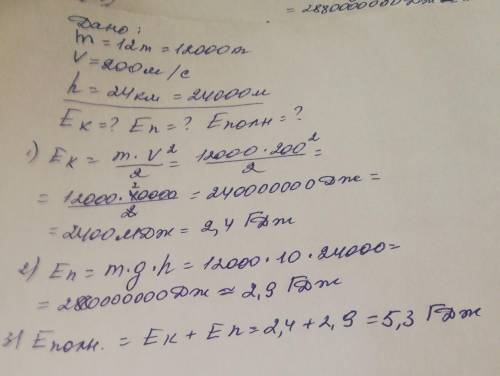 = 2880000000 Дж
Дано:
m = 12т = 12000т
V = 200м/с
h = 24км = 24000м
Eк = ? Eп = ? Eполн = ?
1) Eк = m · V² / 2 = 12000 · 200² / 2 =
= 12000 · 40000 / 2 = 240000000 Дж =
= 2400МДж = 2,4 ГДж
2) Eп = m · g · h = 12000 · 10 · 24000 =
= 2880000000 Дж ≈ 2,9 ГДж
3) Eполн. = Eк + Eп = 2,4 + 2,9 = 5,3 ГДж